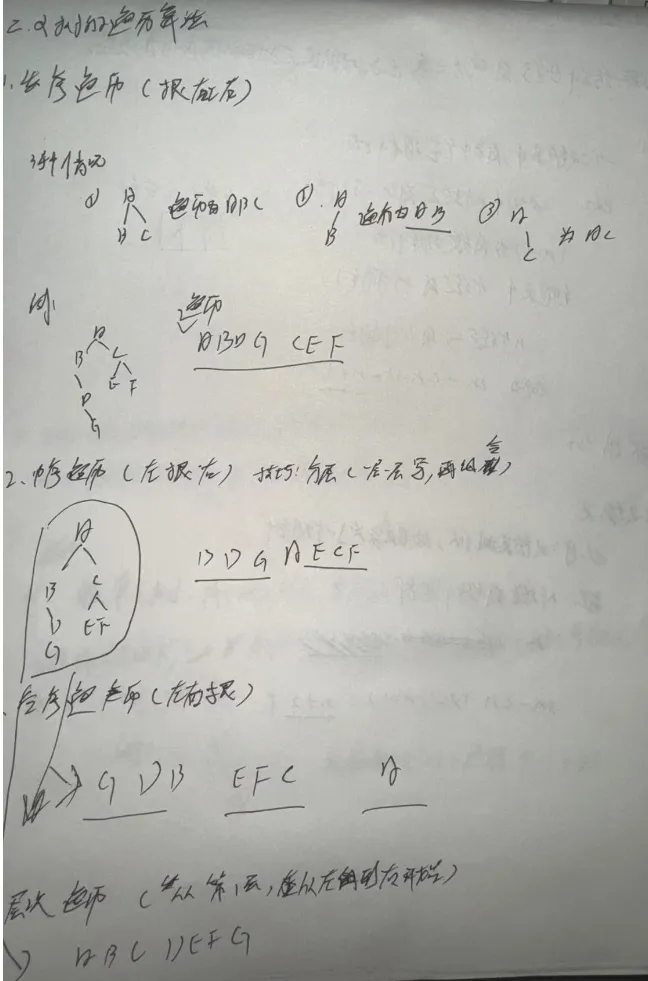 二.二叉树的遍历算法
1.先序遍历(根左右)
3种情况
① A B C 遍历为ABC ② A B 遍历为AB ③ A C 为AC
例: 遍历
A B C D E F G
ABDG CEF
2、中序遍历(左根右) 技巧:分层(一层一层写,再组合)
A B C D E F G
BDG A ECF
后序遍历(左右根)
GDB EFC A
层次遍历(先从第1层,在从左到右开始)
ABCDEFG